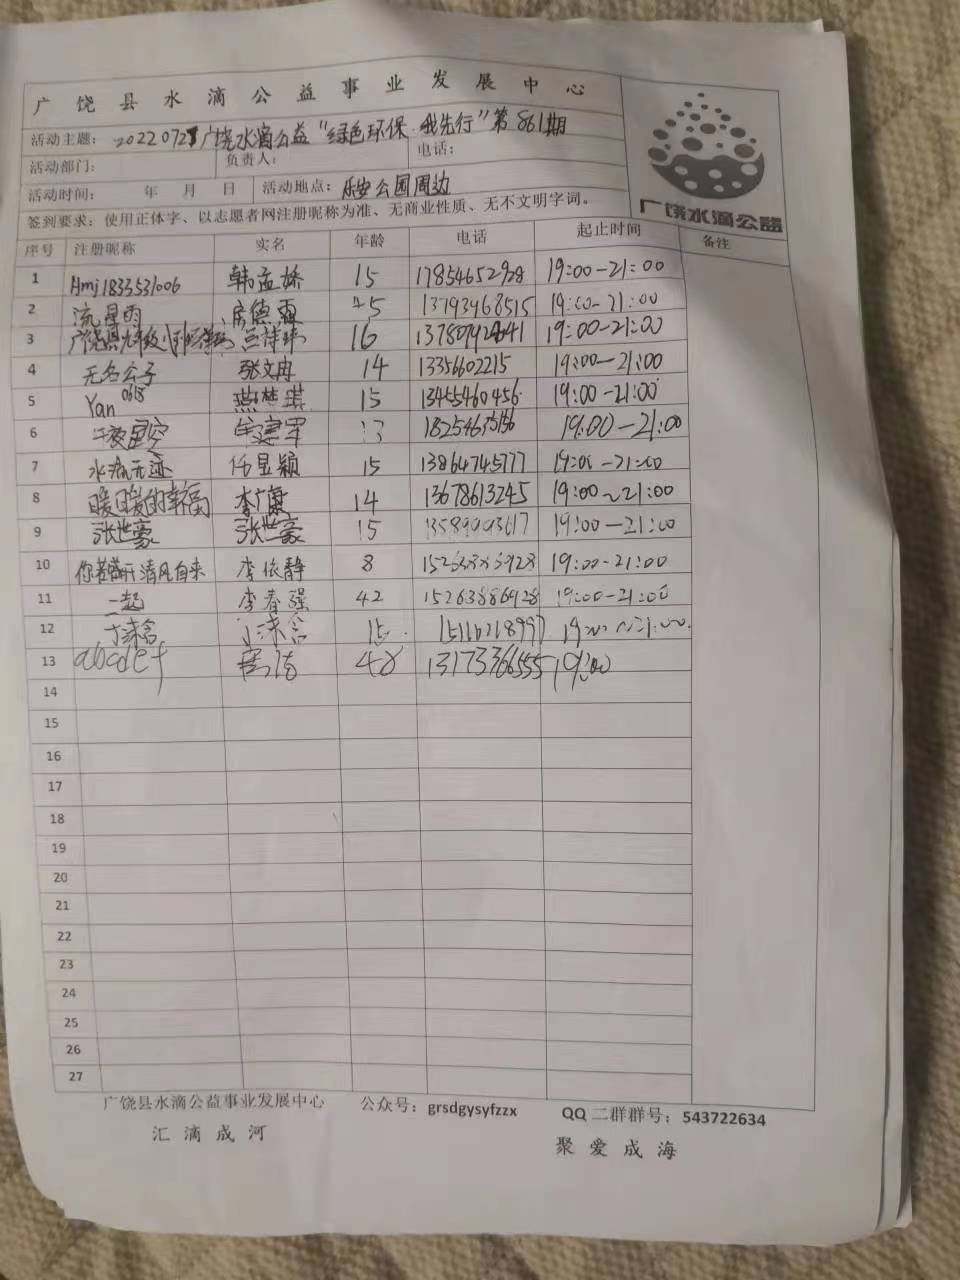 广饶县水滴公益事业发展中心
活动主题：广饶水滴公益“绿色环保 我先行”第861期
活动部门： 负责人： 电话：
活动时间： 年 月 日 活动地点：乐安公园周边
签到要求：使用正体字、以志愿者网注册昵称为准、无商业性质、无不文明字词。
广饶水滴公益
序号 注册昵称 实名 年龄 电话 起止时间 备注
1 Hmj1833531006 韩孟娇 15 17854652928 19:00-21:00
2 流星雨 13793968515 19:00-21:00
3 16 19:00-21:00
4 无名公子 张文冉 14 13356602215 19:00-21:00
5 Yan0618 燕梦琪 15 13455460456 19:00-21:00
6 19:00-21:00
7 水滴无迹 任显颖 15 13864745777 19:00-21:00
8 暖暖的幸福 李广康 14 13678613245 19:00~21:00
9 张世豪 张世豪 15 19:00-21:00
10 你若盛开清风自来 李依静 8 19:00-21:00
11 一起 李春强 42 15263886928 19:00-21:00
12 15
13 abcdef 48 13173366555 19:00
14
15
16
17
18
19
20
21
22
23
24
25
26
27
广饶县水滴公益事业发展中心 公众号：grsdgysyfzzx QQ二群群号：543722634
汇滴成河 聚爱成海